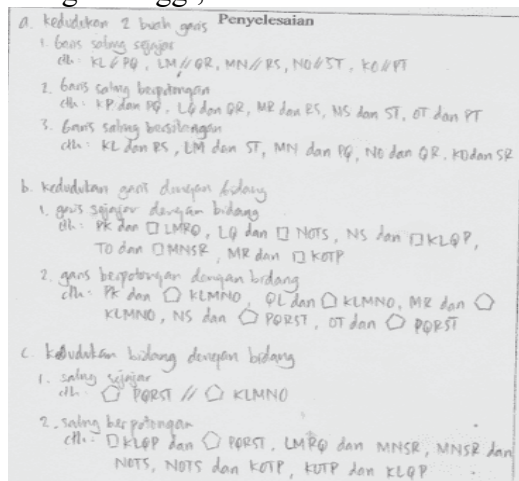 Penyelesaian
a. kedudukan 2 buah garis
1. Garis saling sejajar
cth: KL // PQ , LM // QR , MN // RS, NO // ST , KO // PT
2. Garis saling berpotongan
cth: KP dan PQ , LQ dan QR, MR dan RS, NS dan ST, OT dan PT
3. Garis saling bersilangan
cth: KL dan RS , LM dan ST, MN dan PQ , NO dan QR , KO dan SR
b. kedudukan garis dengan bidang
1. garis sejajar dengan bidang
cth: PK dan □ LMRQ , LQ dan □ NOTS , NS dan □ KLQP,
TO dan □ MNSR , MR dan □ KOTP
2. garis berpotongan dengan bidang
cth: PK dan ⬠ KLMNO , QL dan ⬠ KLMNO, MR dan ⬠
KLMNO, NS dan ⬠ PQRST , OT dan ⬠ PQRST
c. kedudukan bidang dengan bidang
1. saling sejajar
cth: ⬠ PQRST // ⬠ KLMNO
2. saling berpotongan
cth: □ KLQP dan ⬠ PQRST, LMRQ dan MNSR, MNSR dan
NOTS, NOTS dan KOTP, KOTP dan KLQP